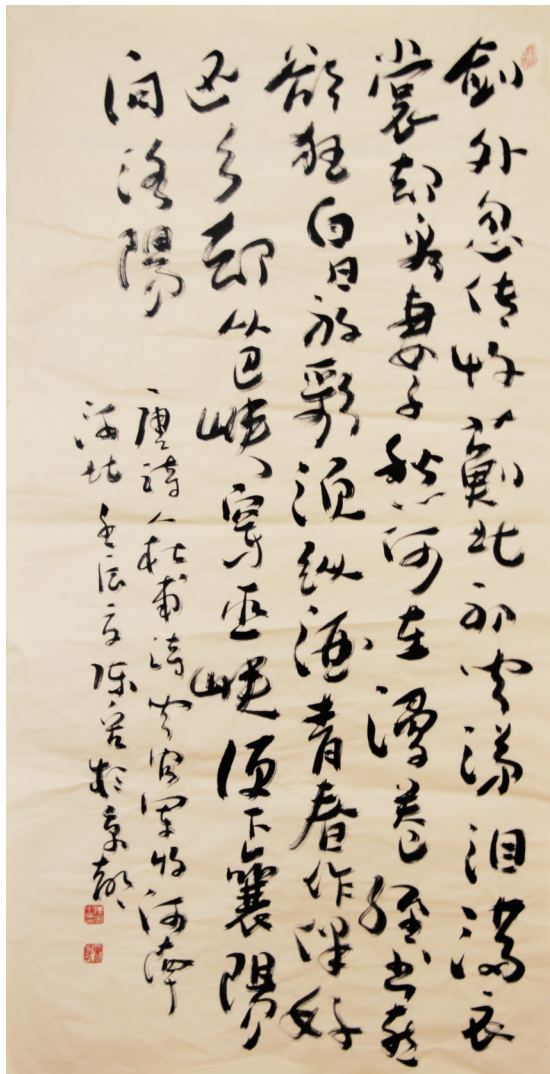 劍外忽传收薊北初闻涕泪满衣
裳却看妻子愁何在漫卷经书喜
欲狂白日放歌须纵酒青春作伴好
还乡却从巴峡穿巫峡便下襄陽
向洛陽
唐诗人杜甫诗闻官军收河南
河北 壬辰夏陈 於京都